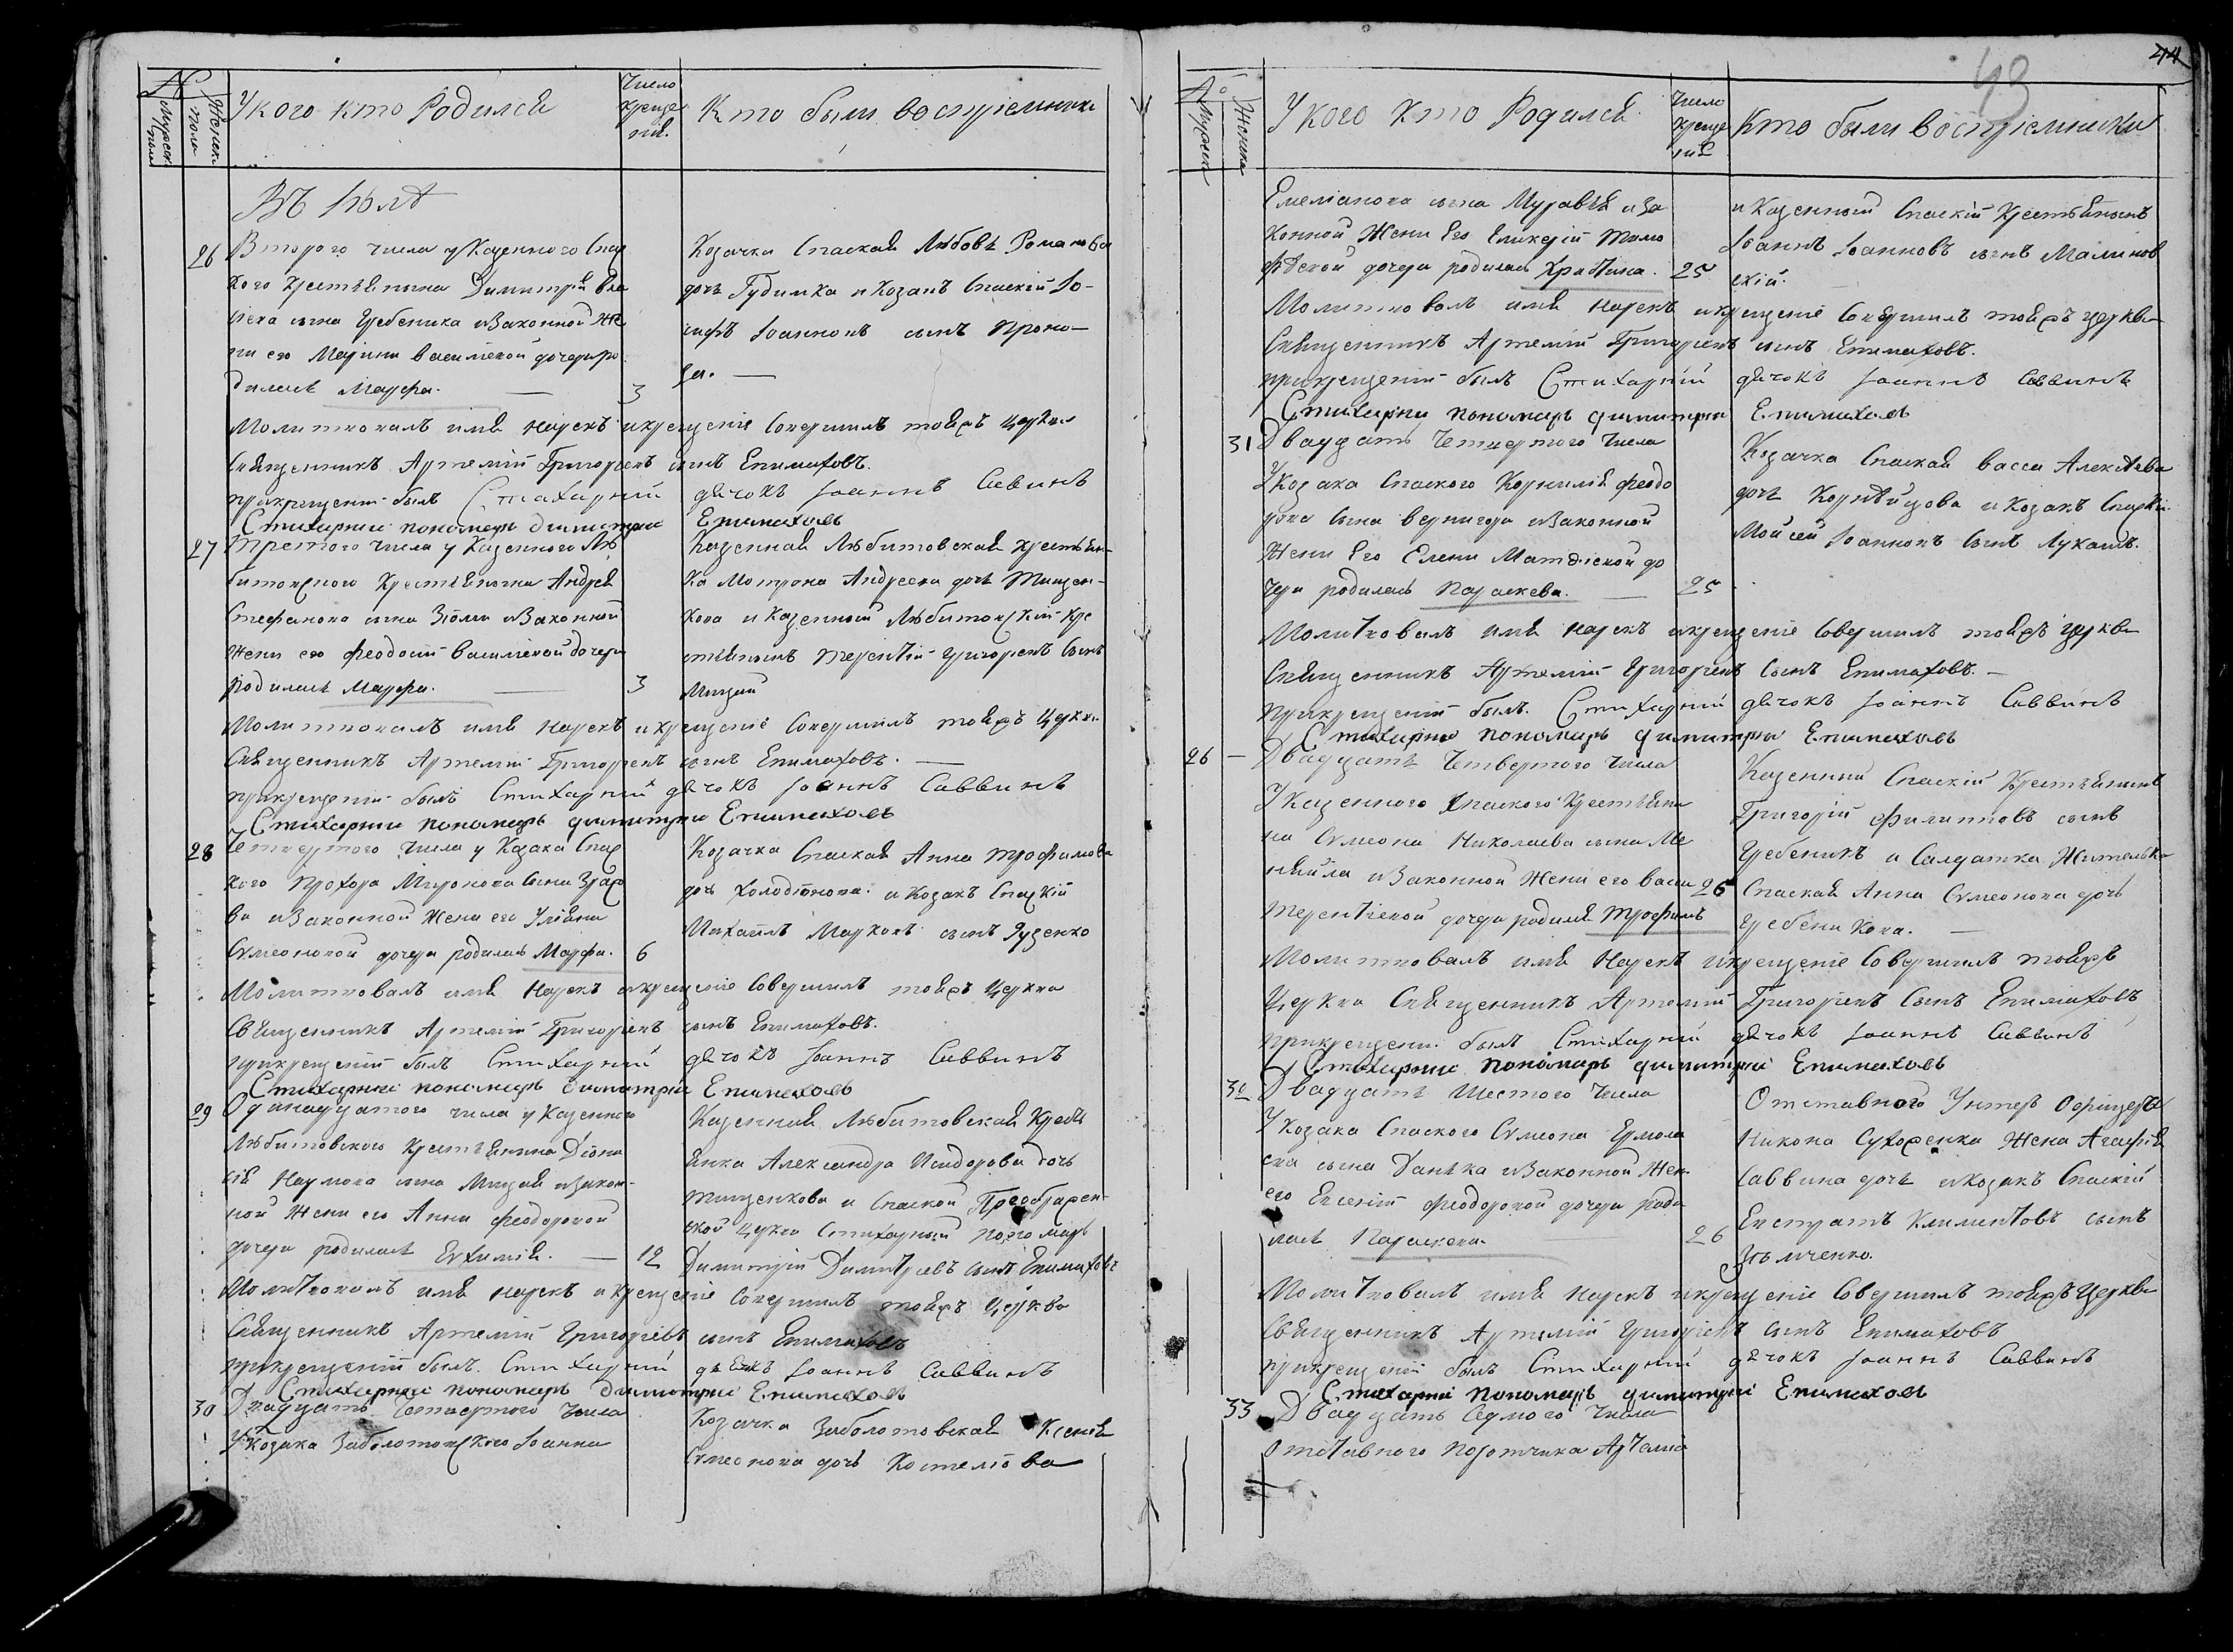 №
Мужеск. пола
Женск. пола
У кого кто Родился
Число крещенія.
Кто были воспріемники
Въ Іюлѣ
26
Втораго числа у Казенного Спас
кого Крестьянина Димитрія Вла
сіева сына Гребеника и Законной Же
ни его Марини Василіевой дочери ро
дилась Марфа.
3
Козачка Спаская Любовь Романова
дочь Гудимка и Козакъ Спаскій Іо-
сифъ Іоанновъ сынъ
Молитвовалъ имя нарекъ и крещеніе Совершилъ тояжъ Церкви
Священникъ Артемій Григорьевъ сынъ Епимаховъ.
при крещеніи былъ Стихарний дячокъ Іоаннъ Савинъ
Стихарний пономарь Димитрій Епимаховъ
27
Третого числа у Казенного Лю
битовского Крестьянина Андрея
Стефанова сына Зюми и Законной
жени его Феодосіи Василіевой дочери
родилась Марфа.
3
Казенная Любитовская крестьян-
ка Мотрона Андреева дочь Тищен-
кова и Казенный Любитовскій кре
стьянинъ Терентій Григорьевъ Сынъ
Мицай
Молитвовалъ имя Нарекъ и крещеніе Совершилъ тояжъ Церкви
Священникъ Артемій Григорьевъ сынъ Епимаховъ.
при крещеніи былъ Стихарний дячокъ Іоаннъ Саввинъ
Стихарний пономарь Димитрій Епимаховъ
28
Четвертого числа у Козака Спас
кого Прохора Миронова Сына
ва и Законной Жени его Уліяни
Симеоновой дочери родилась Марфа.
6
Козачка Спаская Анна Трофимова
дочь Холодіонова. и Козакъ Спаскій
Михаилъ Марковъ сынъ Руденко
Молитвовалъ имя Нарекъ и крещеніе Совершилъ тояжъ Церкви
Священникъ Артемій Григорьевъ сынъ Епимаховъ.
при крещеніи былъ Стихарний дячокъ Іоаннъ Саввинъ
Стихарний пономарь Димитрій Епимаховъ
29
Одинадцатого числа у Казенного
Любитовского Крестьянина Діони
сія Наумова сына Мицая и Закон-
ной Жени его Анни Феодоровой
дочери родилась Евхимія.
12
Казенная Любитовская Кресть
янка Александра Исидорова дочь
Тищенкова и Спаской Преображен-
ской Церкви Стихарный Пономарь
Димитрій Димитріевъ сынъ Епимаховъ
Молитвовалъ имя нарекъ и крещеніе Совершилъ тояжъ Церкви
Священникъ Артемій Григоріевъ сынъ Епимаховъ
при крещеніи былъ. Стихарний дячокъ Іоаннъ Саввинъ
Стихарний пономарь Димитрій Епимаховъ
30
Двадцать Четвертого Числа
У Козака Заболотовского Іоанна
Козачка Заболотовская Ксенія
Симеонова дочь Костелюва
43
44
№
Мужеска
Женска
У кого кто Родился
Число крещенія
Кто были воспріемники
Емеліанова сына Муравья и За
конной Жени Его Гликеріи Тимо
фѣевой дочери родилась Христина.
25
и Казенный Спаскій Крестьянинъ
Іоаннъ Іоанновъ сынъ Малинов
скій.
Молитвовалъ имя Нарекъ и крещеніе Совершилъ тояжъ церкви
Священникъ Артемій Григорьевъ сынъ Епимаховъ.
при крещеніи былъ Стихарний дячокъ Іоаннъ Саввинъ
Стихарни пономарь Димитрій Епимаховъ
31
Двадцать Четвертого Числа
У Козака Спаского Корнилія Феодо
рова Сына Вернигора и Законной
Жени Его Елени Матфіевой до
чери родилась Параскева.
25
Козачка Спаская Васса Алексѣева
дочь Корнѣйцова и Козакъ Спаскій
Мойсей Іоанновъ Сынъ Лукашъ.
Молитвовалъ имя Нарекъ и крещеніе Совершилъ тояжъ Церкви
Священникъ Артемій Григорьевъ Сынъ Епимаховъ.
при крещеніи былъ. Стихарний дячокъ Іоаннъ Саввинъ
Стихарни пономарь Димитрій Епимаховъ
26
Двадцать Четвертого Числа
У Казенного Спаского Крестьяни
на Симеона Николаева сына Ме
и Законной Жени его Васи
Терентіевой дочери родился Трофимъ
26
Казенный Спаскій Крестьянинъ
Григорій Филипповъ сынъ
Гребеникъ и Салдатка Жителька
Спаская Анна Симеонова дочь
Гребеникова.
Молитвовалъ имя Нарекъ и крещеніе Совершилъ тояжъ
Церкви Священникъ Артемій Григорьевъ Сынъ Епимаховъ
при крещеніи былъ Стихарний дячокъ Іоаннъ Саввинъ
Стихарний пономарь Димитрій Епимаховъ
Двадцать Шестого Числа
У Козака Спаского Симеона Ермола
ева сына Данька и Законной Жени
его Евгеніи Феодоровой дочери роди
лась Параскева.
26
Отставного Унтеръ Офицера
Никона Сухоренка Жена Агафія
Саввина дочь и Козакъ Спаскій
Евстратъ Климентовъ сынъ
Молитвовалъ имя Нарекъ и крещеніе Совершилъ тояжъ Церкви
Священникъ Артемій Григорьевъ сынъ Епимаховъ
при крещеніи былъ Стихарний дячокъ Іоаннъ Саввинъ
Стихарній пономарь Димитрій Епимаховъ
33
Двадцать Седмого Числа
Отставного Поротчика Артемія